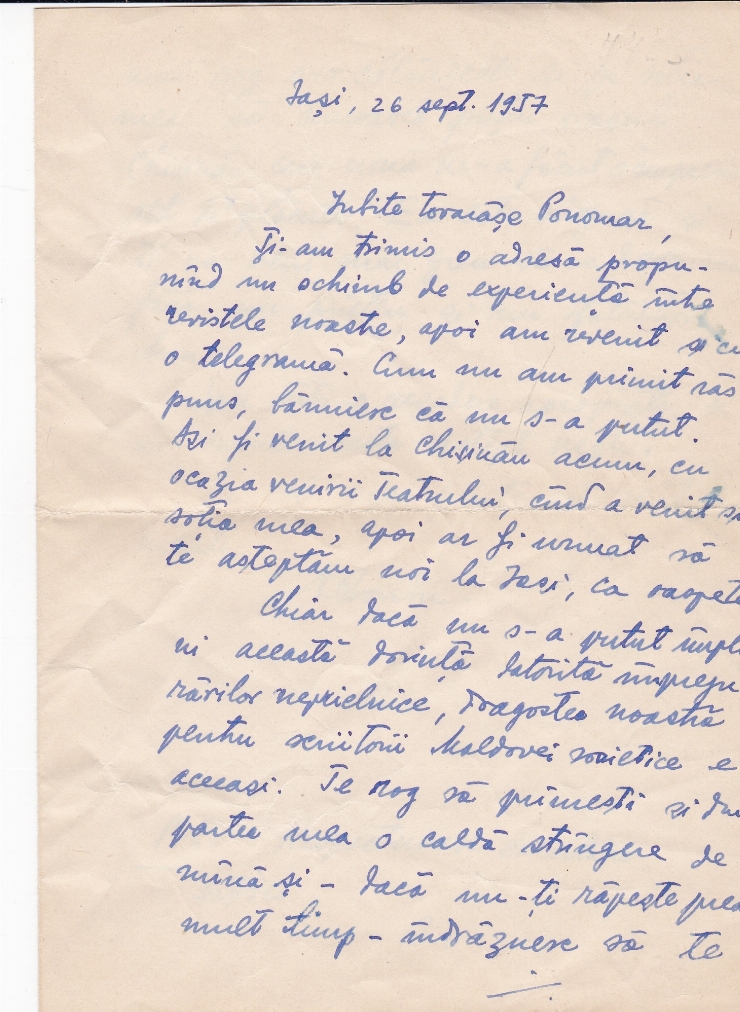 Iași, 26 sept. 1957
Iubite tovarășe Ponomar,
Ți-am trimis o adresă propu-
nînd un schimb de experiență între
revistele noastre, apoi am revenit și cu
o telegramă. Cum nu am primit răs
puns, bănuiesc că nu s-a putut.
Ași fi venit la Chișinău acum, cu
ocazia venirii Teatrului, cînd a venit și
soția mea, apoi ar fi urmat să
te așteptăm noi la Iași, ca oaspete
Chiar dacă nu s-a putut împli
ni această dorință datorită împreju
rărilor neprielnice, dragostea noastră
pentru scriitorii Moldovei sovietice e
aceeași. Te rog să primești și din
partea mea o caldă strîngere de
mînă și - dacă nu-ți răpește prea
mult timp - îndrăznesc să te